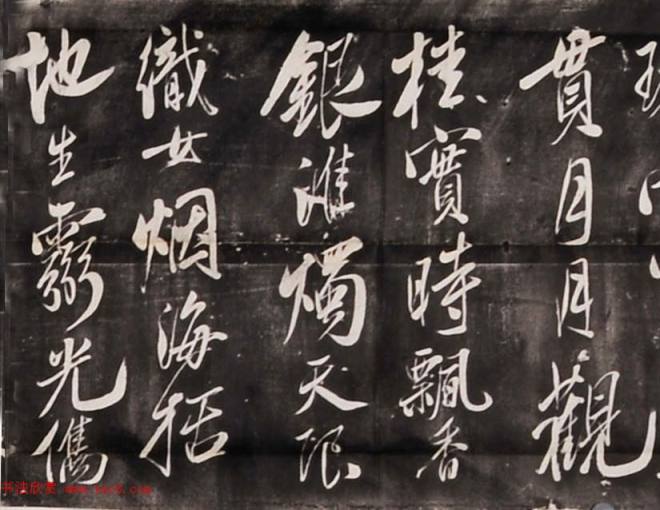 貫月月觀
桂實時飄香
銀淮燭天限
織女烟海括
地生光儁
书法欣赏 www.yac8.com